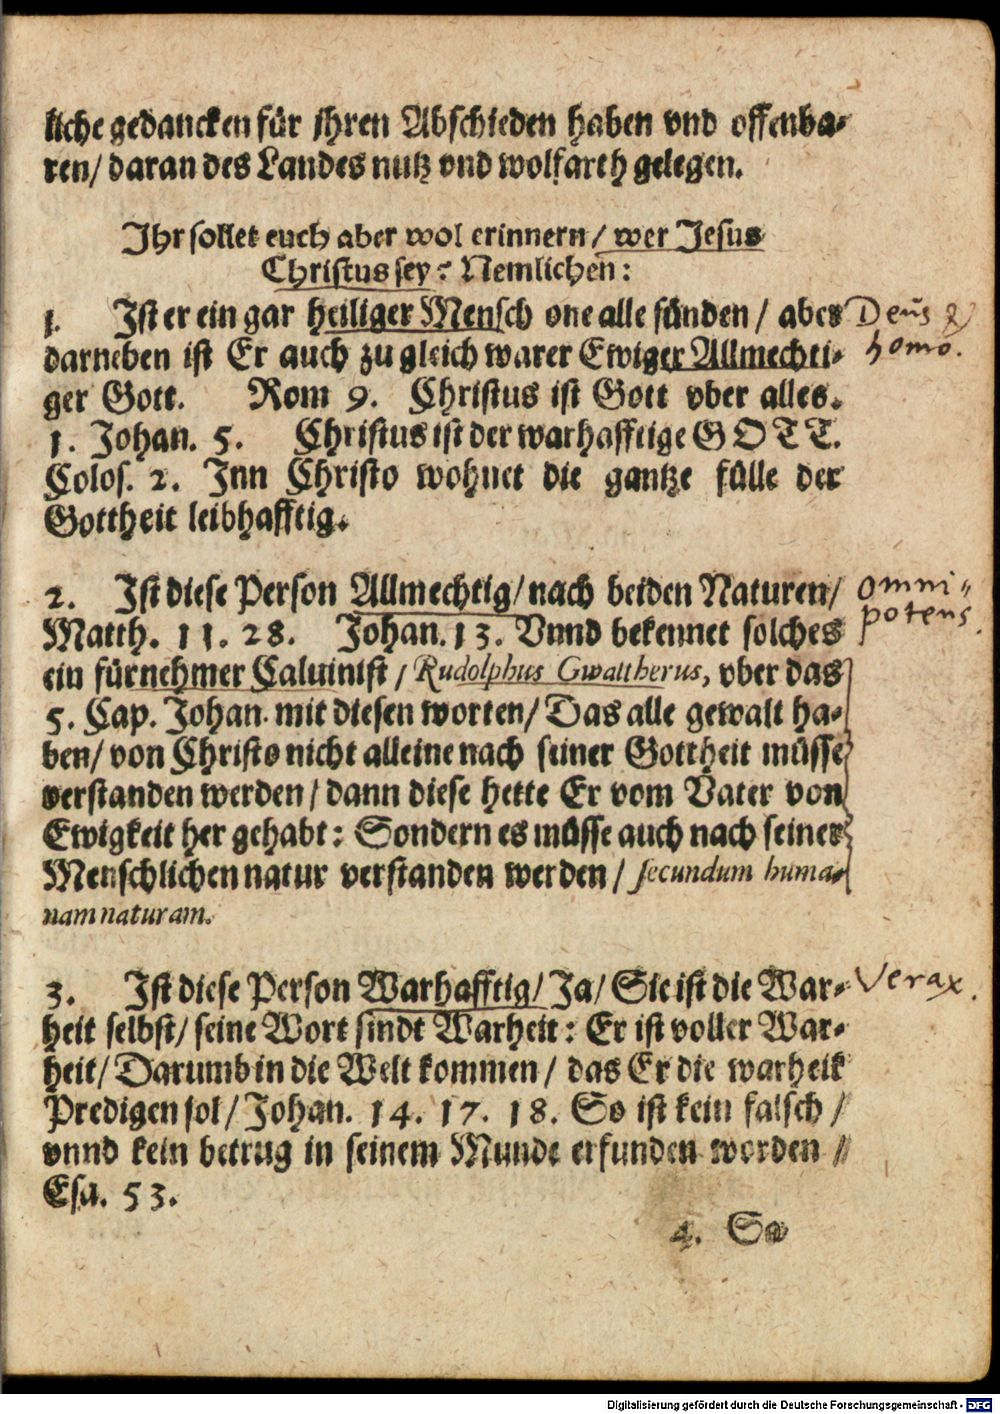 liche gedancken für jhren Abschieden haben vnd offenba-
ren/ daran des Landes nutz vnd wolfarth gelegen.
Jhr sollet euch aber wol erinnern/ wer Jesus
Christus sey: Nemlichen:
1. Jst er ein gar heiliger Mensch one alle sünden/ aber
Deus &
homo.
darneben ist Er auch zu gleich warer Ewiger Allmechti-
ger Gott. Rom 9. Christus ist Gott vber alles.
1. Johan. 5. Christus ist der warhafftige GOTT.
Colos. 2. Jnn Christo wohnet die gantze fülle der
Gottheit leibhafftig.
2. Jst diese Person Allmechtig/ nach beiden Naturen/
Omni-
potens.
Matth. 11. 28. Johan. 13. Vnnd bekennet solches
ein fürnehmer Caluinist/ Rudolphus Gwaltherus, vber das
5. Cap. Johan. mit diesen worten/ Das alle gewalt ha-
ben/ von Christo nicht alleine nach seiner Gottheit müsse
verstanden werden/ dann diese hette Er vom Vater von
Ewigkeit her gehabt: Sondern es müsse auch nach seiner
Menschlichen natur verstanden werden/ secundum huma-
nam naturam.
3. Jst diese Person Warhafftig/ Ja/ Sie ist die War-
Verax.
heit selbst/ seine Wort sindt Warheit: Er ist voller War-
heit/ Darumb in die Welt kommen/ das Er die warheit
Predigen sol/ Johan. 14. 17. 18. So ist kein falsch/
vnnd kein betrug in seinem Munde erfunden worden/
Esa. 53.
4. So
Digitalisierung gefördert durch die Deutsche Forschungsgemeinschaft - DFG